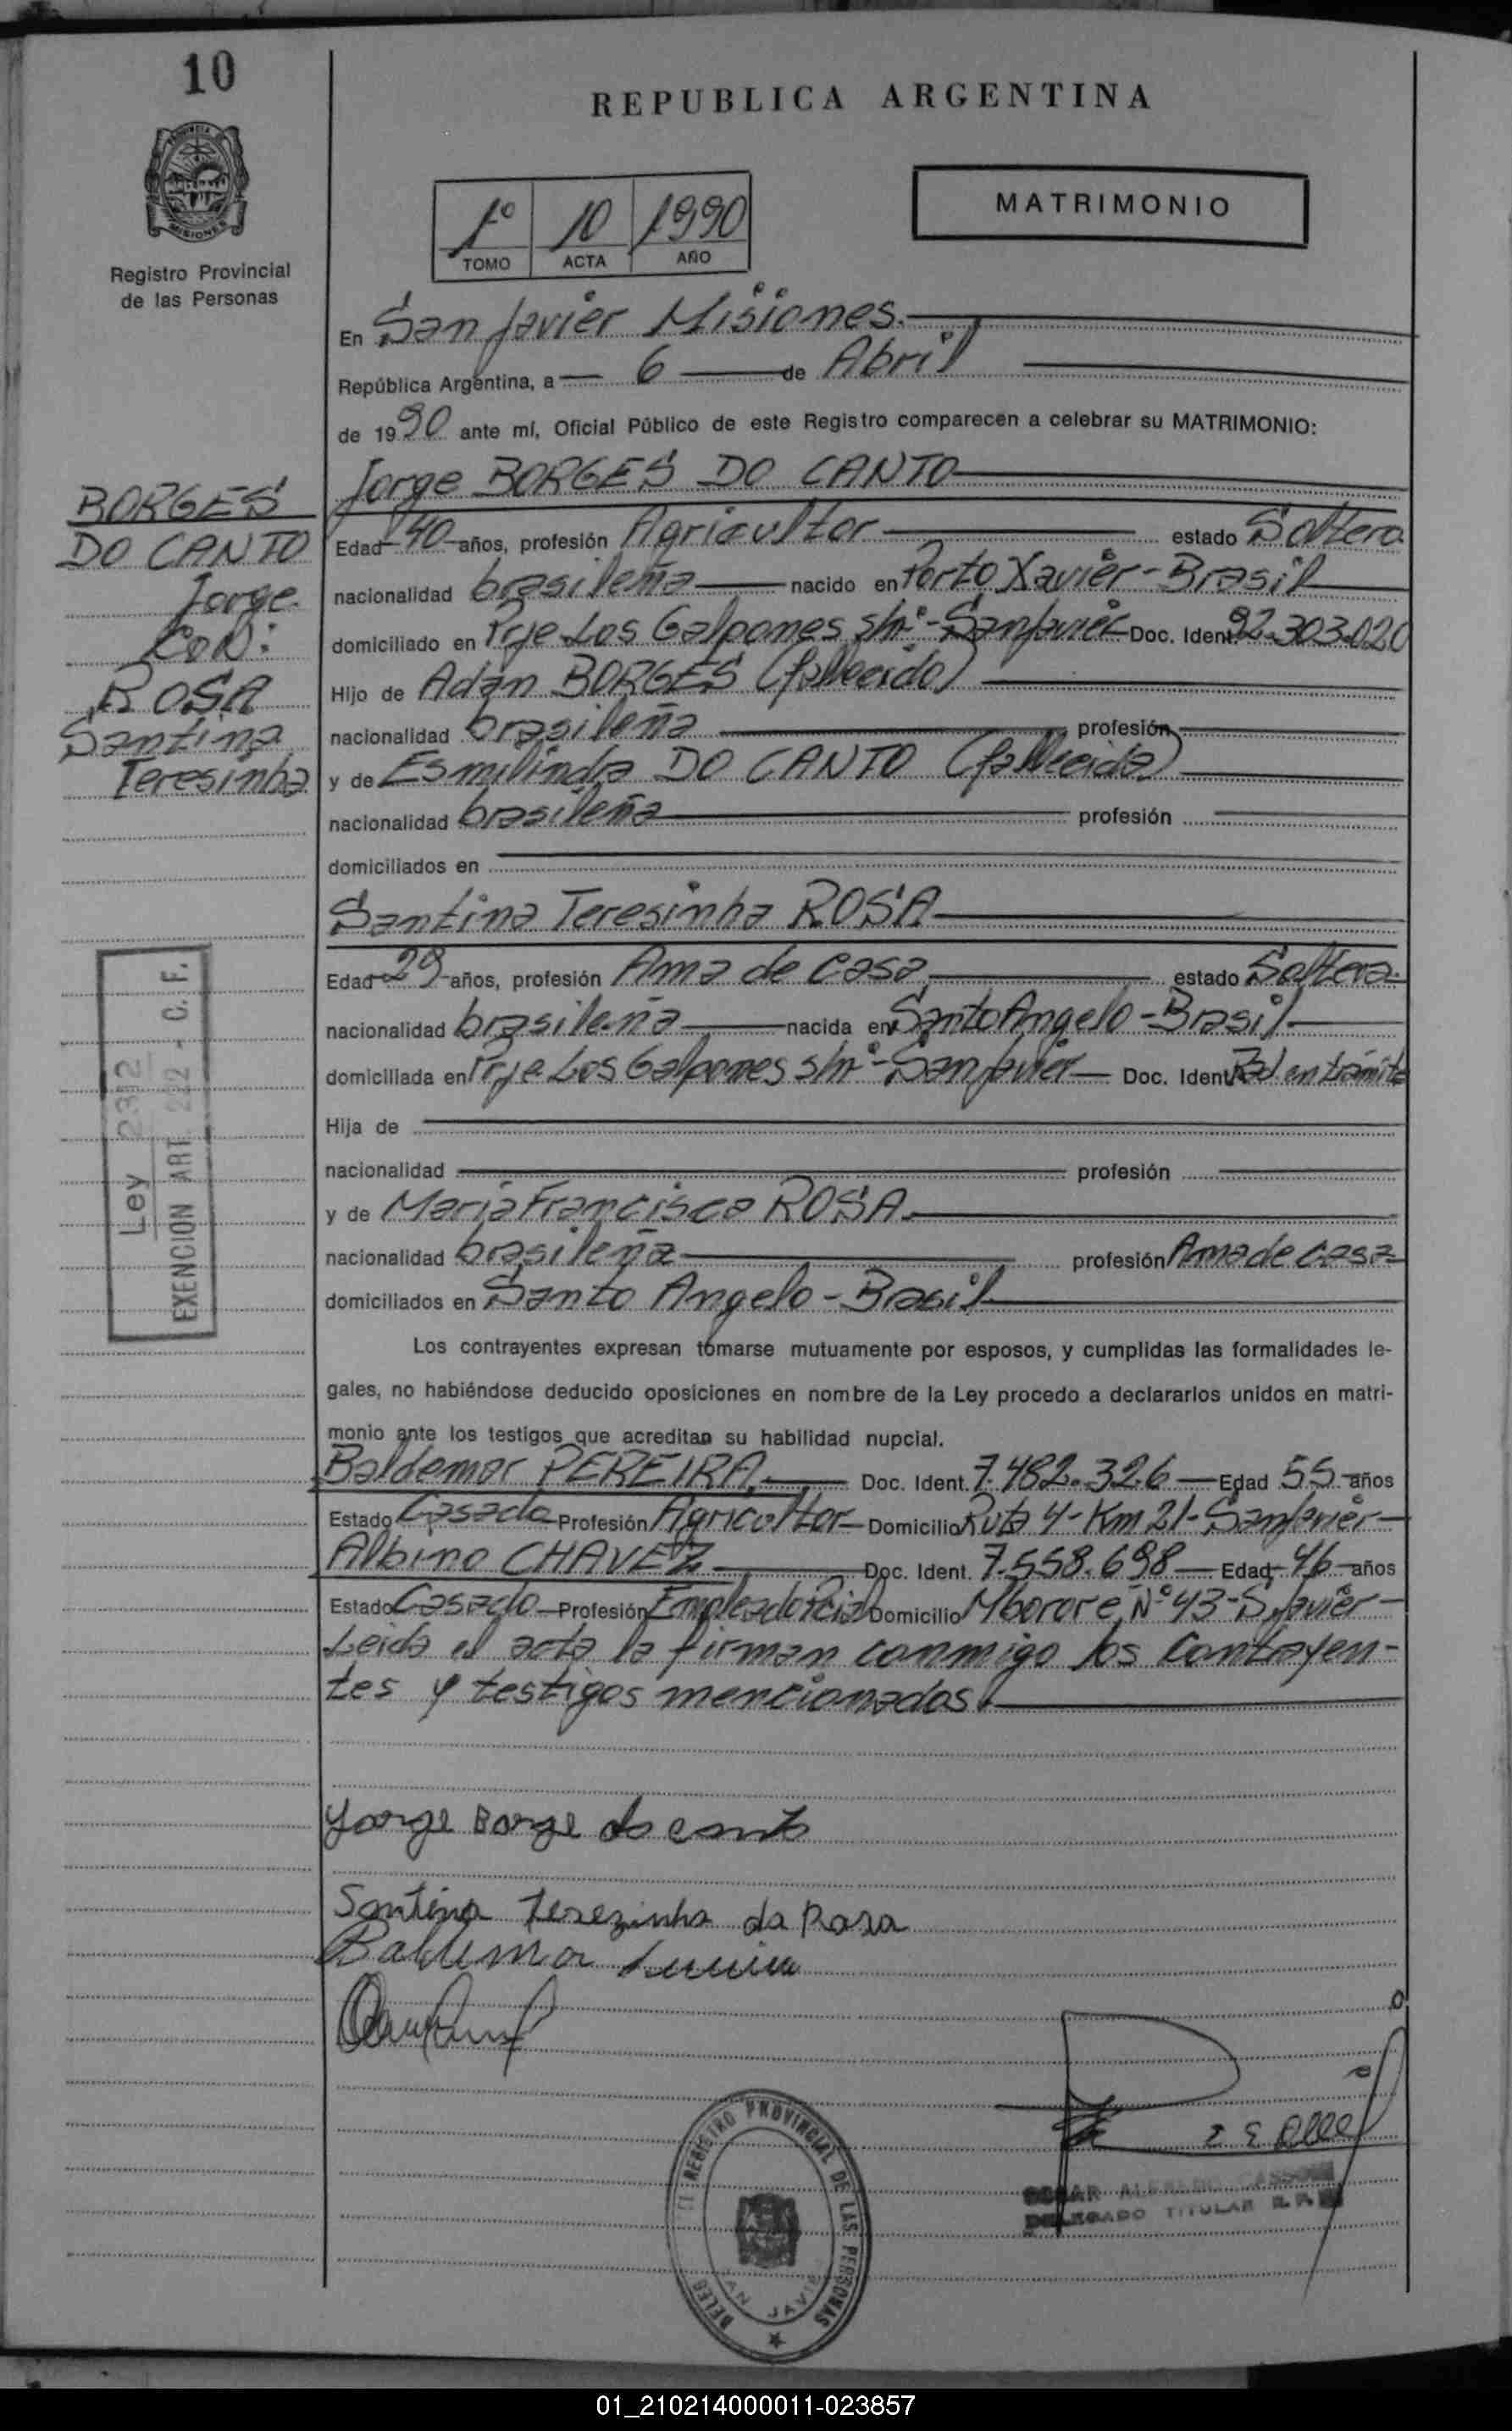 10
REPUBLICA ARGENTINA
MATRIMONIO
1º 10 1990
TOMO ACTA AÑO
PROVINCIA MISIONES
Registro Provincial
de las Personas
En San Javier Misiones.
República Argentina, a 6 de Abril
de 1990 ante mí, Oficial Público de este Registro comparecen a celebrar su MATRIMONIO:
BORGES
DO CANTO
Jorge
CON:
ROSA
Santina
Teresinha
Jorge BORGES DO CANTO
Edad 40 años, profesión Agricultor estado Soltero
nacionalidad brasileña nacido en Porto Xavier - Brasil
domiciliado en Pje Los Galpones s/nº - San Javier Doc. Ident. 92.303.020
Hijo de Adán BORGES (fallecido)
nacionalidad brasileña profesión
y de Esmilinda DO CANTO (fallecida)
nacionalidad brasileña profesión
domiciliados en
Santina Teresinha ROSA
Edad 29 años, profesión Ama de casa estado Soltera
nacionalidad brasileña nacida en Santo Angelo - Brasil
domiciliada en Pje Los Galpones s/nº - San Javier Doc. Ident. Rad en trámite
Hija de
nacionalidad profesión
y de María Francisca ROSA.
nacionalidad brasileña profesión Ama de casa
domiciliados en Santo Angelo - Brasil
Ley 2312
EXENCION ART 222 - C. F.
Los contrayentes expresan tomarse mutuamente por esposos, y cumplidas las formalidades le-
gales, no habiéndose deducido oposiciones en nombre de la Ley procedo a declararlos unidos en matri-
monio ante los testigos que acreditan su habilidad nupcial.
Baldemar PEREIRA, Doc. Ident. 7.482.326 Edad 55 años
Estado Casado Profesión Agricultor Domicilio Ruta 4 - Km 21 - San Javier
Albino CHAVEZ Doc. Ident. 7.558.698 Edad 46 años
Estado Casado Profesión Empleado Pcial Domicilio Mbororé Nº 43 - S. Javier
Leida el acta la firman conmigo los contrayen-
tes y testigos mencionados.
Yorge Borge do canto
Santina Terezinha da Rosa
Baldemar
REGISTRO PROVINCIAL DE LAS PERSONAS
SAN JAVIER
DELEGADO TITULAR R. P.
01_210214000011-023857